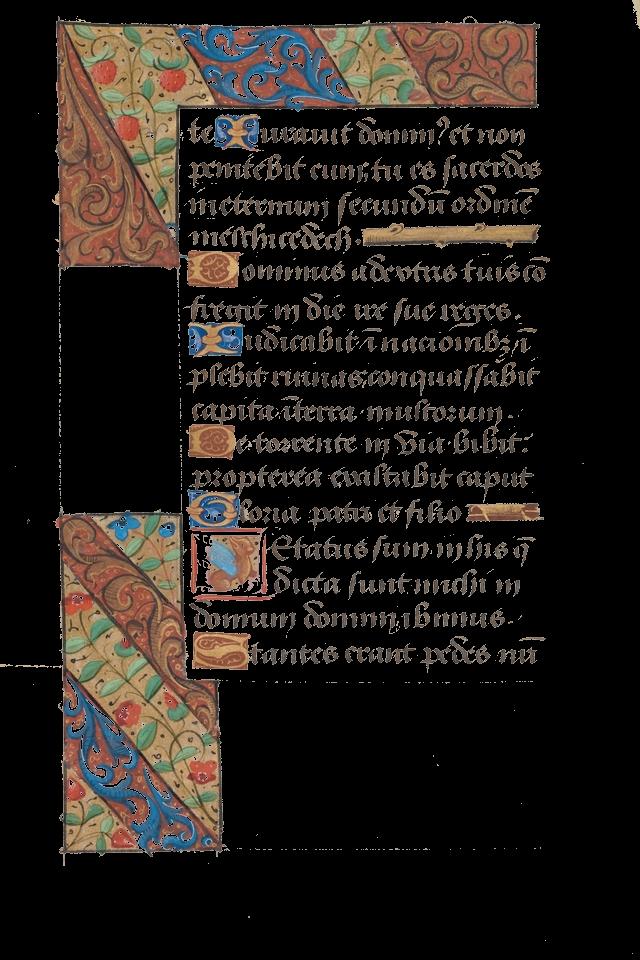 te Iurauit domin9 et non
penitebit eum, tu es sacerdos
ineternum secundū ordinē
melchicedech.
Dominus adextris tuis cō
fregit in die ire sue reges.
Iudicabit ī nacionibꝫ, ī
plebit ruinas, conquassabit
capita īterra multorum.
De torrente in via bibit:
propterea exaltabit caput
Gloria patri et filio
Letatus sum in his q̄
dicta sunt michi in
domum domini ibimus.
Stantes erant pedes nr̄i